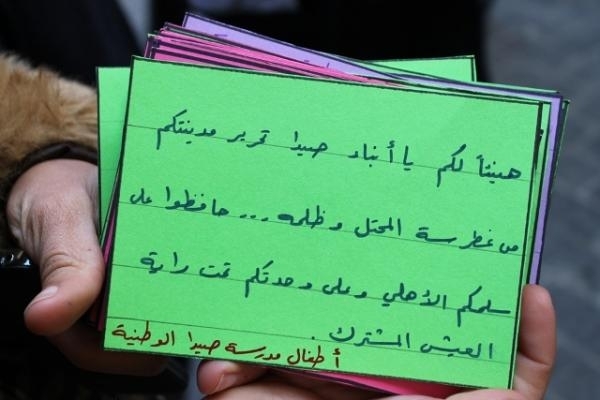 هنيئاً لكم يا أبناء صيدا تحرير مدينتكم
من غطرسة المحتل وظلمه... حافظوا على
سلمكم الأهلي وعلى وحدتكم تحت راية
العيش المشترك
أطفال مدرسة صيدا الوطنية